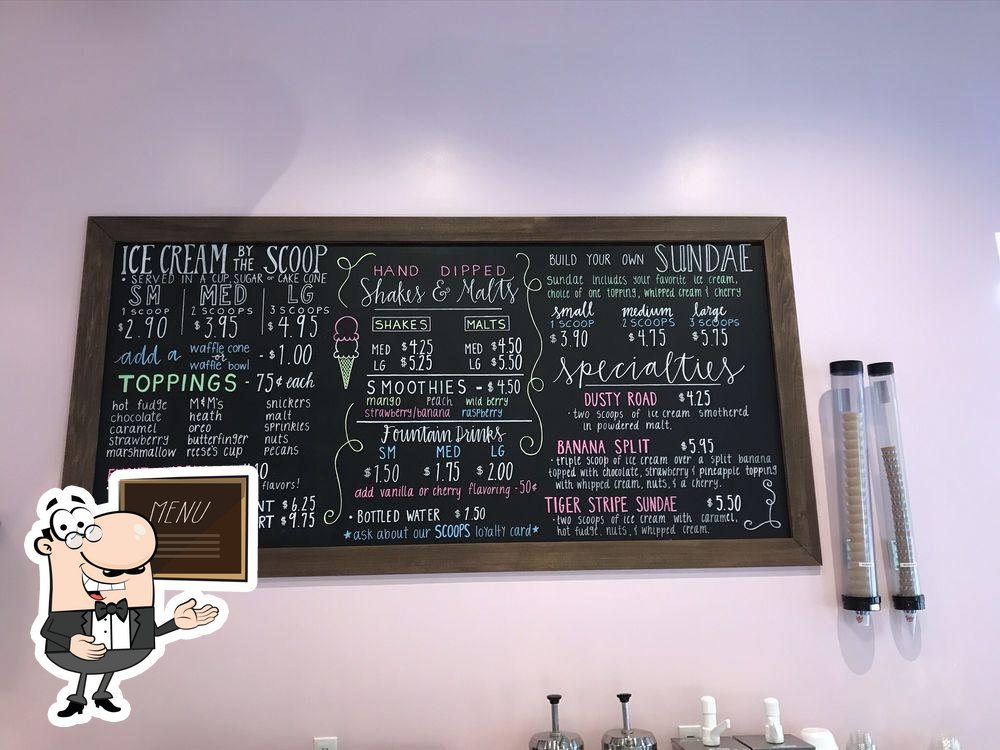 ICE CREAM BY THE SCOOP
• SERVED IN A CUP, SUGAR or CAKE CONE
SM MED LG
1 SCOOP 2 SCOOPS 3 SCOOPS
$2.90 $3.95 $4.95
add a waffle cone or waffle bowl - $1.00
TOPPINGS - 75¢ each
hot fudge M&M's snickers
chocolate heath malt
caramel oreo sprinkles
strawberry butterfinger nuts
marshmallow reese's cup pecans
flavors!
NT $6.25
RT $9.75
MENU
HAND DIPPED
Shakes & Malts
SHAKES MALTS
MED $4.25 MED $4.50
LG $5.25 LG $5.50
SMOOTHIES - $4.50
mango peach wild berry
strawberry/banana raspberry
Fountain Drinks
SM MED LG
$1.50 $1.75 $2.00
add vanilla or cherry flavoring - 50¢
• BOTTLED WATER $1.50
★ask about our SCOOPS loyalty card★
BUILD YOUR OWN SUNDAE
Sundae includes your favorite ice cream,
choice of one topping, whipped cream & cherry
small medium large
1 SCOOP 2 SCOOPS 3 SCOOPS
$3.90 $4.75 $5.75
specialties
DUSTY ROAD $4.25
• two scoops of ice cream smothered
in powdered malt.
BANANA SPLIT $5.95
• triple scoop of ice cream over a split banana
topped with chocolate, strawberry & pineapple topping
with whipped cream, nuts, & a cherry.
TIGER STRIPE SUNDAE $5.50
• two scoops of ice cream with caramel,
hot fudge, nuts, & whipped cream.